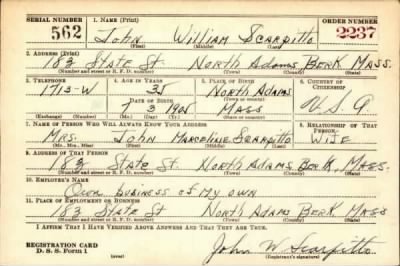 SERIAL NUMBER 1. NAME (Print) ORDER NUMBER
562 John William Scarpitto 2237
(First) (Middle) (Last)
2. ADDRESS (Print)
183 State St North Adams Berk Mass.
(Number and street or R. F. D. number) (Town) (County) (State)
3. TELEPHONE 4. AGE IN YEARS 5. PLACE OF BIRTH 6. COUNTRY OF CITIZENSHIP
1713-W 35 North Adams
DATE OF BIRTH (Town or county) U.S.A
7 3 1905 Mass
(Exchange) (Number) (Mo.) (Day) (Yr.) (State or country)
7. NAME OF PERSON WHO WILL ALWAYS KNOW YOUR ADDRESS 8. RELATIONSHIP OF THAT PERSON
Mrs. John Marceline Scarpitto Wife
(Mr., Mrs., Miss) (First) (Middle) (Last)
9. ADDRESS OF THAT PERSON
183 State St. North Adams, Berk, Mass.
(Number and street or R. F. D. number) (Town) (County) (State)
10. EMPLOYER'S NAME
Own business of my own
11. PLACE OF EMPLOYMENT OR BUSINESS
183 State St North Adams Berk Mass
(Number and street or R. F. D. number) (Town) (County) (State)
I AFFIRM THAT I HAVE VERIFIED ABOVE ANSWERS AND THAT THEY ARE TRUE.
REGISTRATION CARD John W. Scarpitto
D. S. S. Form 1 (over) (Registrant's signature)